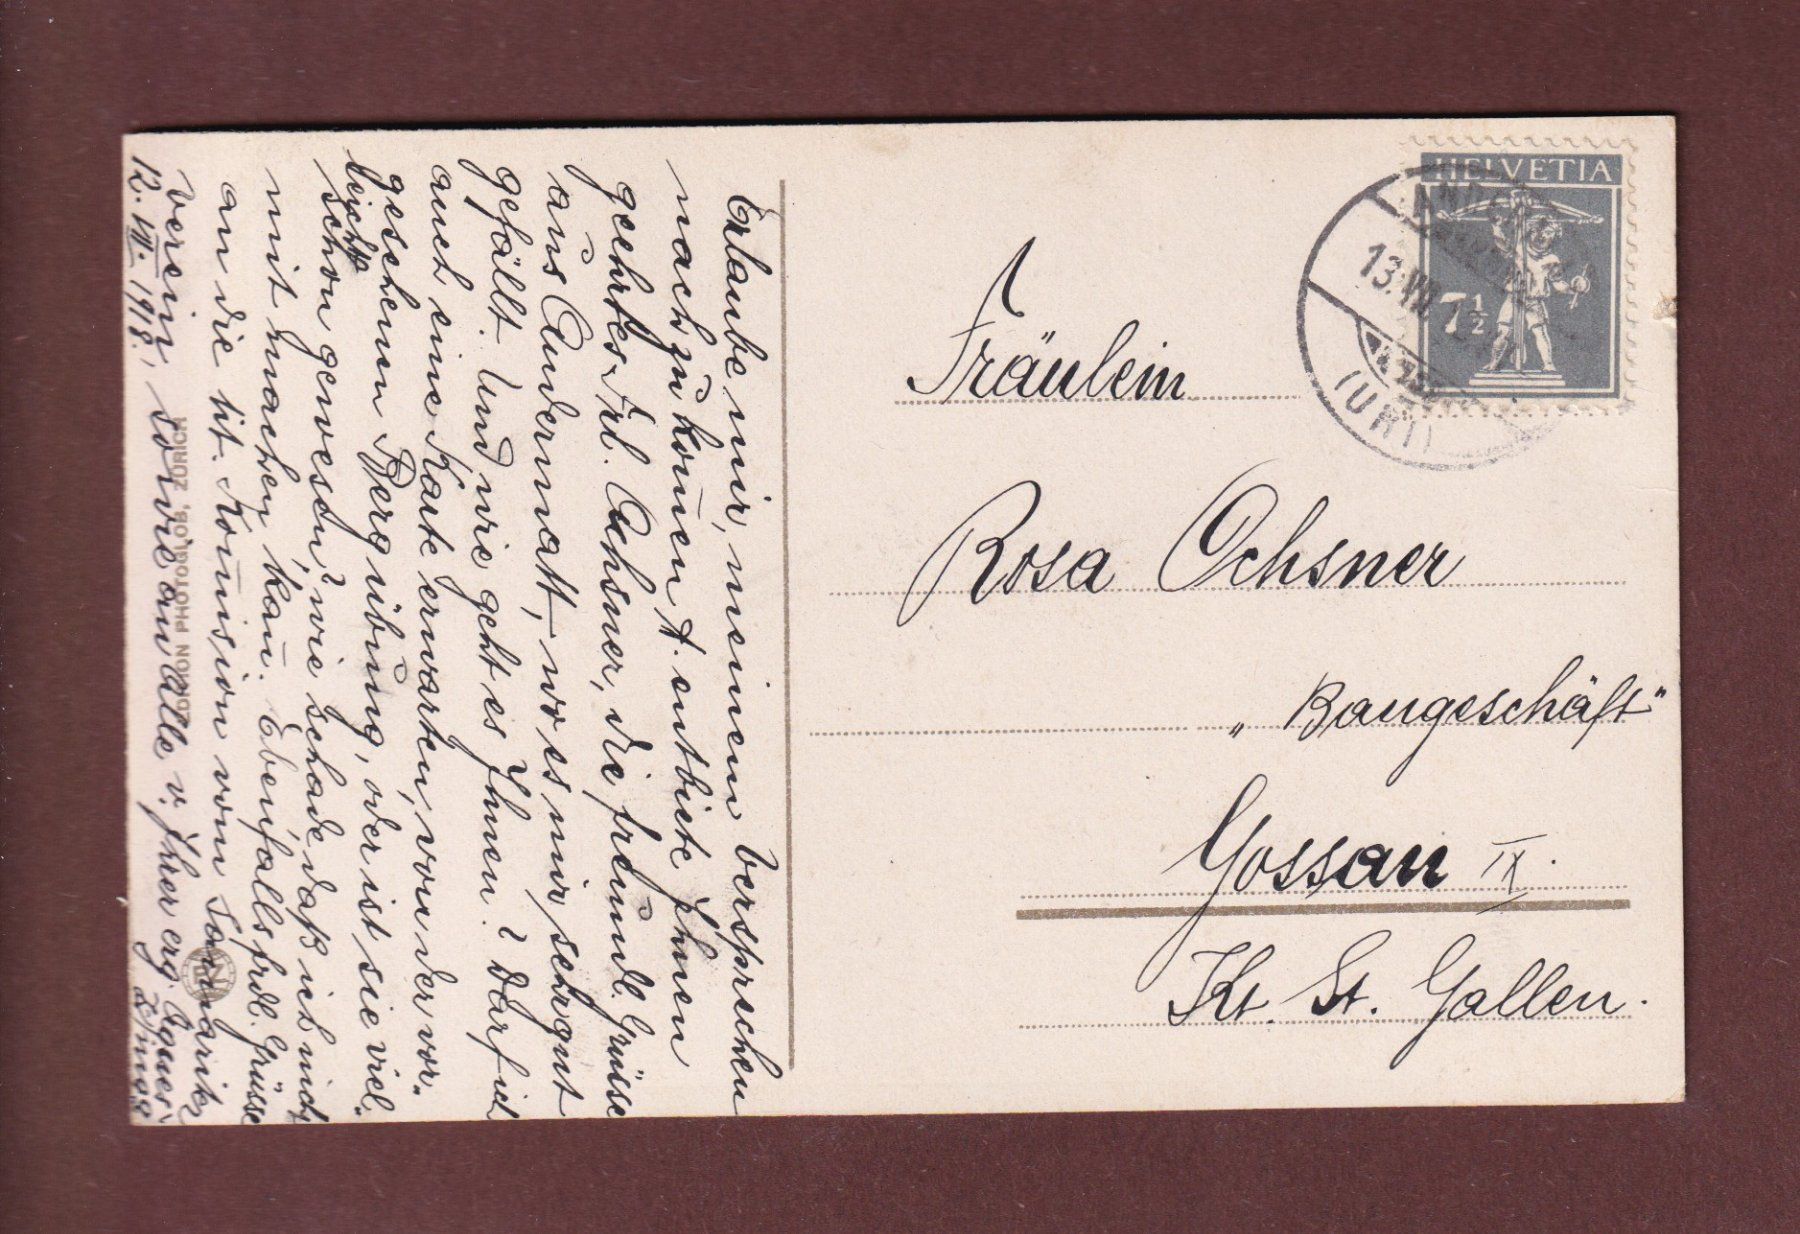 Erlaube mir, meinen Versprechen
nach zu kom̄en &. entbiete Ihnen
geehrtes Frl. Ochsner, die freundl. Grüsse
aus Andermatt, wo es mir sehr gut
gefällt. Und wie geht es Ihnen? Darf ich
auch eine Karte erwarten, von der vor-
gesehenen Bergübung, oder ist sie viel-
leicht
schon gewesen? wie schade, daß ich nicht
mit machen kan̄. Ebenfalls frdl. Grüsse
an die tit. Kom̄ision vom Samarit.
Verein, sowie an alle v. Ihrer erg.
12. VII. 1918.
EDITION PHOTOGLOB, ZÜRICH
HELVETIA
7½
13. VII.
(URI)
Fräulein
Rosa Ochsner
„Baugeschäft"
Gossau IX.
Kt. St. Gallen.